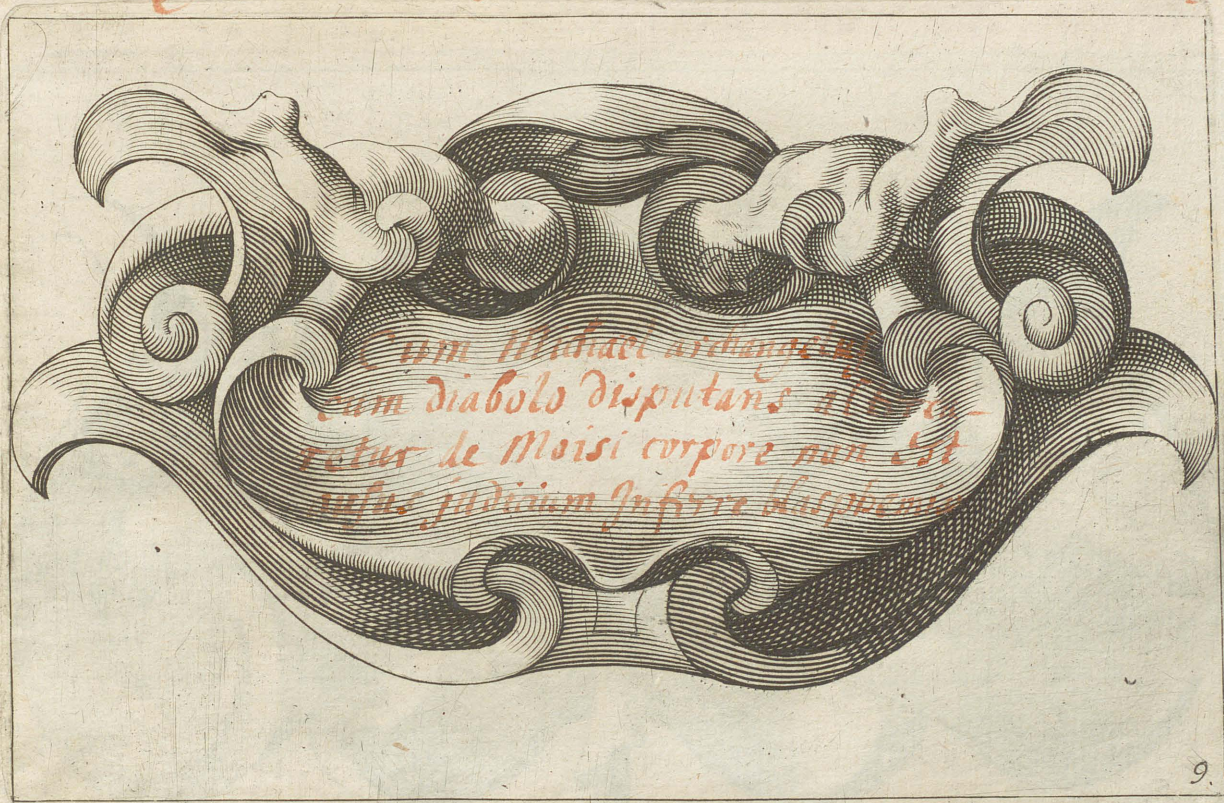 Cum Michael archangelus
cum diabolo disputans alterca-
retur de Moisi corpore non Est
ausus judicium Inferre blasphemiæ
9.